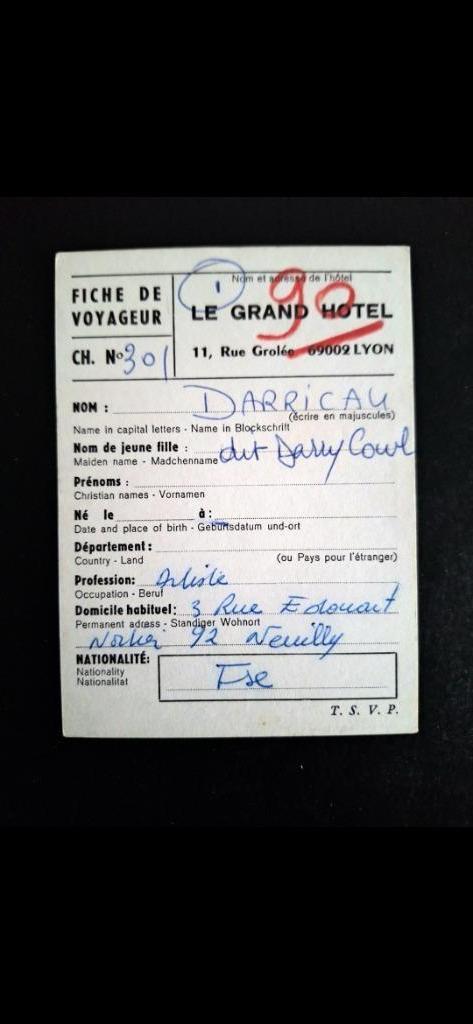 FICHE DE VOYAGEUR
CH. Nº 301
1
Nom et adresse de l'hôtel
90
LE GRAND HOTEL
11, Rue Grolée 69002 LYON
NOM : DARRICAU
(écrire en majuscules)
Name in capital letters - Name in Blockschrift
Nom de jeune fille : dit Darry Cowl
Maiden name - Madchenname
Prénoms :
Christian names - Vornamen
Né le à :
Date and place of birth - Geburtsdatum und-ort
Département :
Country - Land (ou Pays pour l'étranger)
Profession: Artiste
Occupation - Beruf
Domicile habituel: 3 Rue Edouart
Permanent adress - Standiger Wohnort
92 Neuilly
NATIONALITÉ: Fse
Nationality
Nationalitat
T. S. V. P.